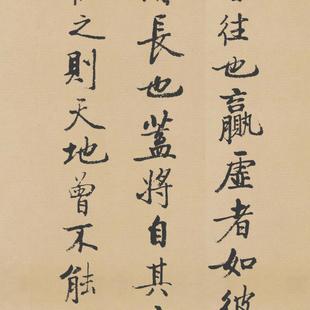 往也贏虛者如彼
長也蓋將自其
之則天地曾不能